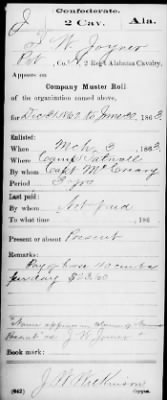 Confederate.
J 2 Cav. Ala.
J W Joyner
Pvt, Co. , 2 Reg't Alabama Cavalry.
Appears on
Company Muster Roll
of the organization named above,
for Dec 31 1862 to June 30, 1863.
Enlisted:
When Mch 3, 1863
Where Camp
By whom Capt McCreary
Period 3 yrs
Last paid:
By whom Not paid
To what time , 186
Present or absent Present
Remarks:
Pay of horse 
$
Name appears in column of Names
Present as J W Joiner
Book mark:
J W Wilkinson
(642) Copyist.